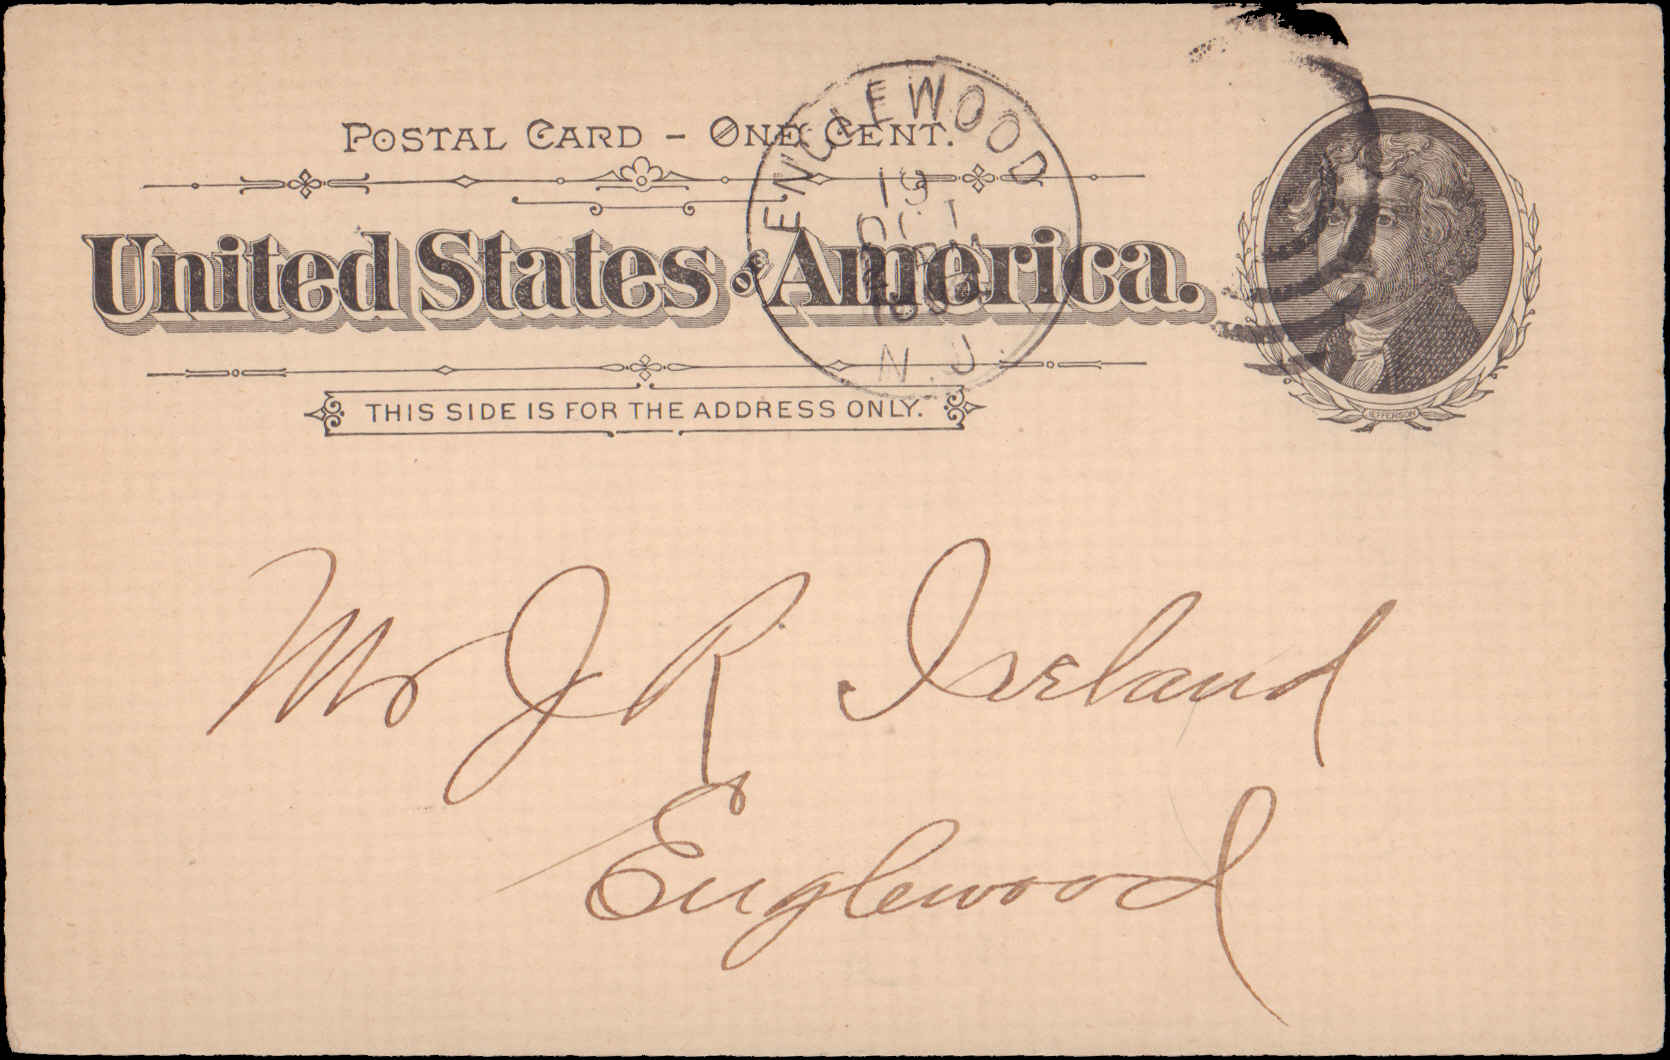 POSTAL CARD - ONE CENT.
United States of America.
THIS SIDE IS FOR THE ADDRESS ONLY.
ENGLEWOOD
19
OCT
N.J.
JEFFERSON
Mr J R Ireland
Englewood